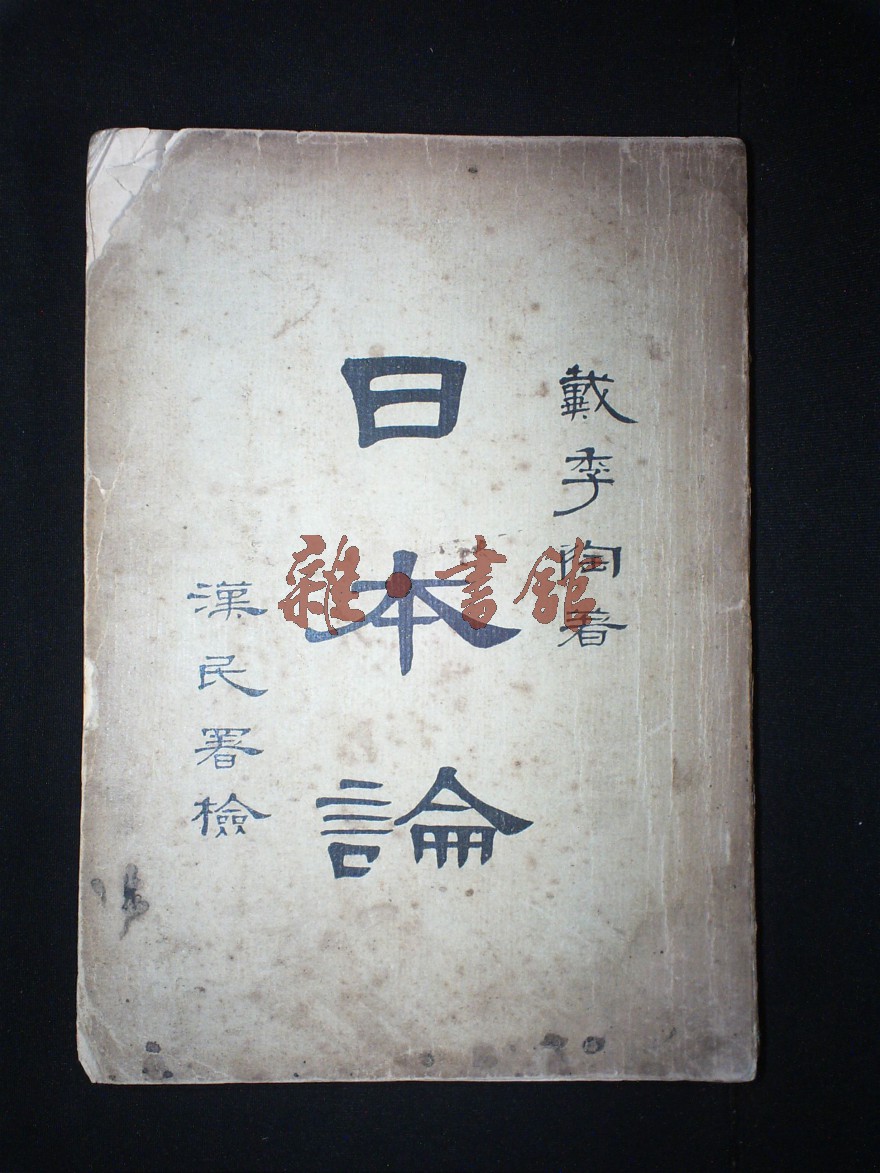 戴季陶著
日本論
漢民署檢
雜·書館